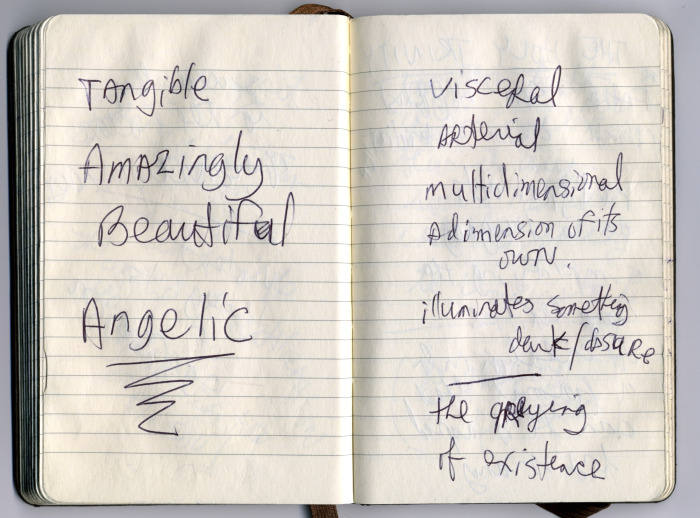 TAngible
AmAZingly
Beautiful
Angelic
visceRal
ARterial
multidimensional
A dimension of its
own.
illuminates something
dark/
the gReying
of existence